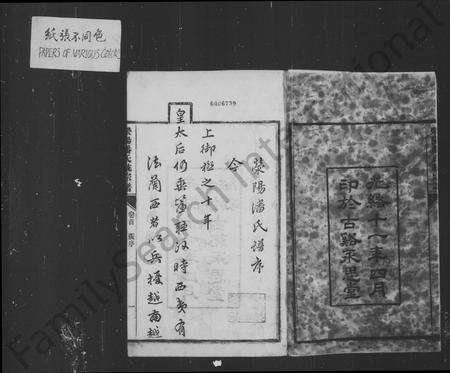 紙張不同色
PAPERS OF VARIOUS COLORS
6006779
滎陽潘氏譜序
今
上御極之十年
皇太后仍垂簾聽政時西夷有
法蘭西者以兵擾越南越
卷首 張序
光緒十一年四月
印於古路永思堂
FamilySearch International